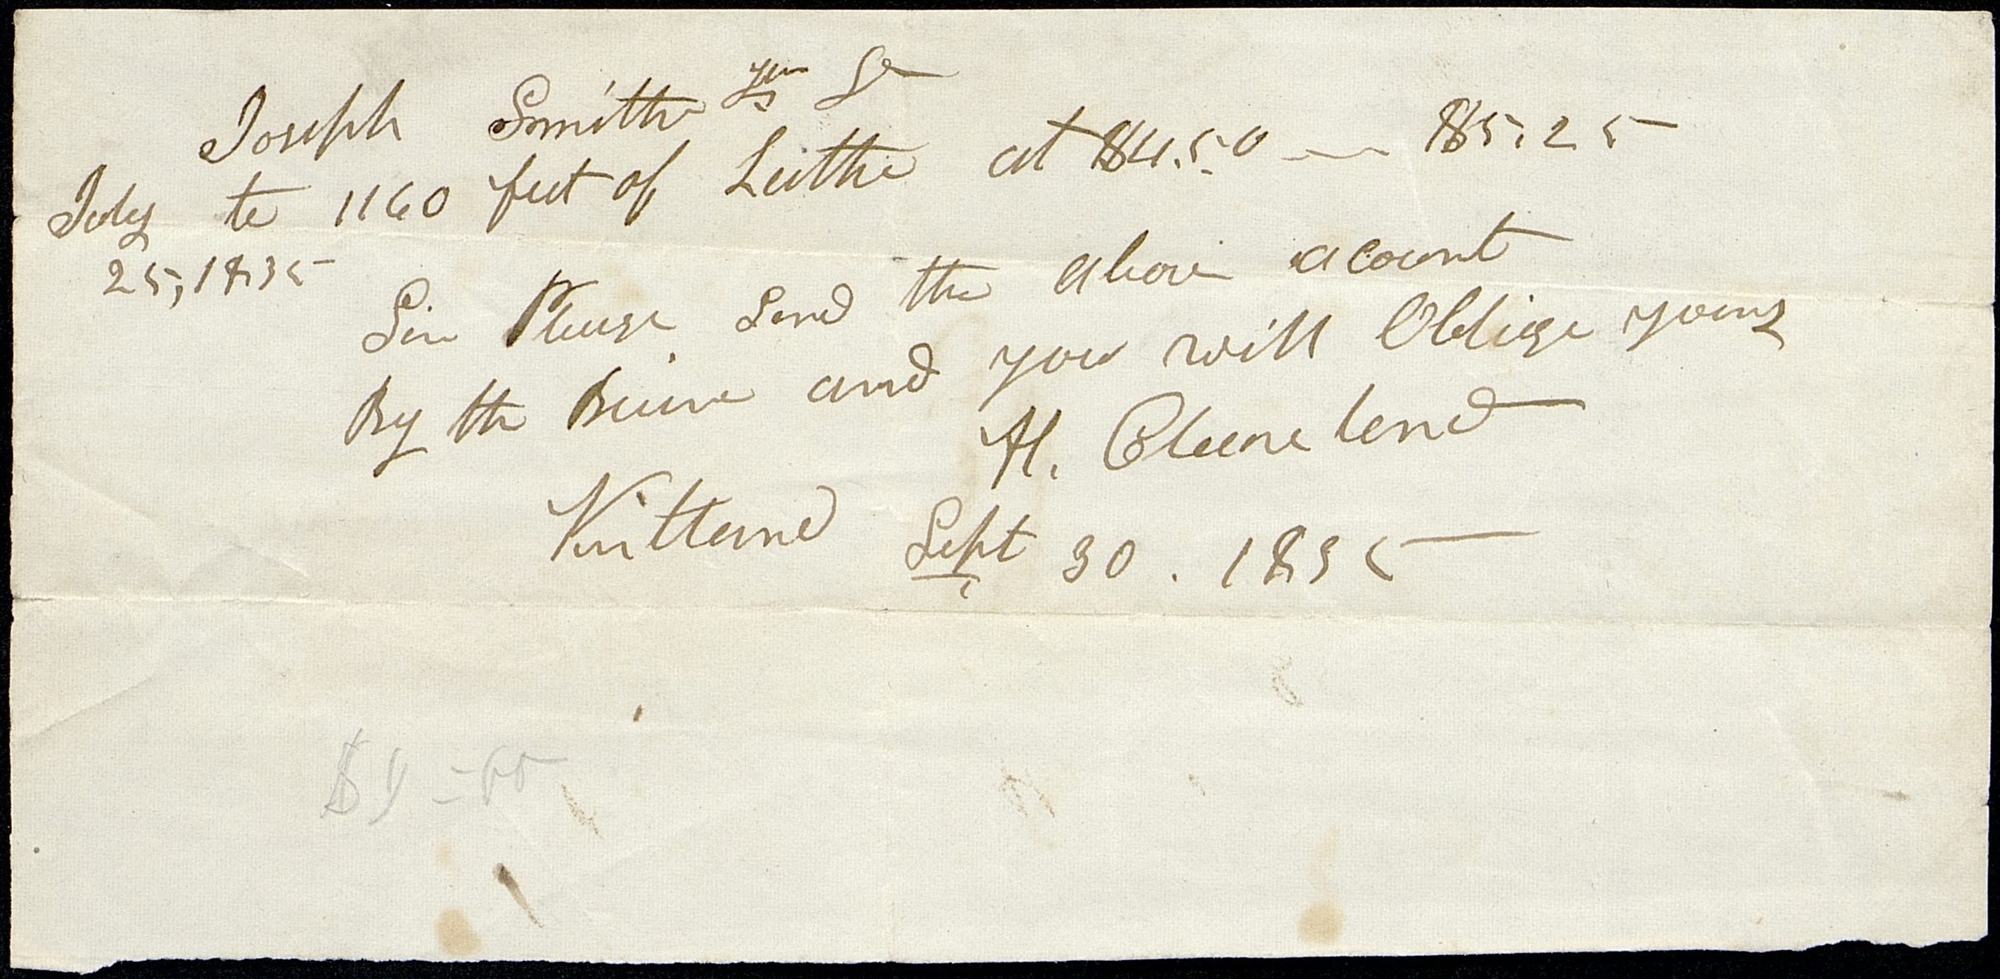 Joseph Smith Jun Dr
July to 1160 feet of Lathe at $4.50 — $5.25
25, 1835
Sir Please Send the above acount
By the Barer and you will Oblige yours
H. Cleaveland
Kirtland Sept 30. 1835